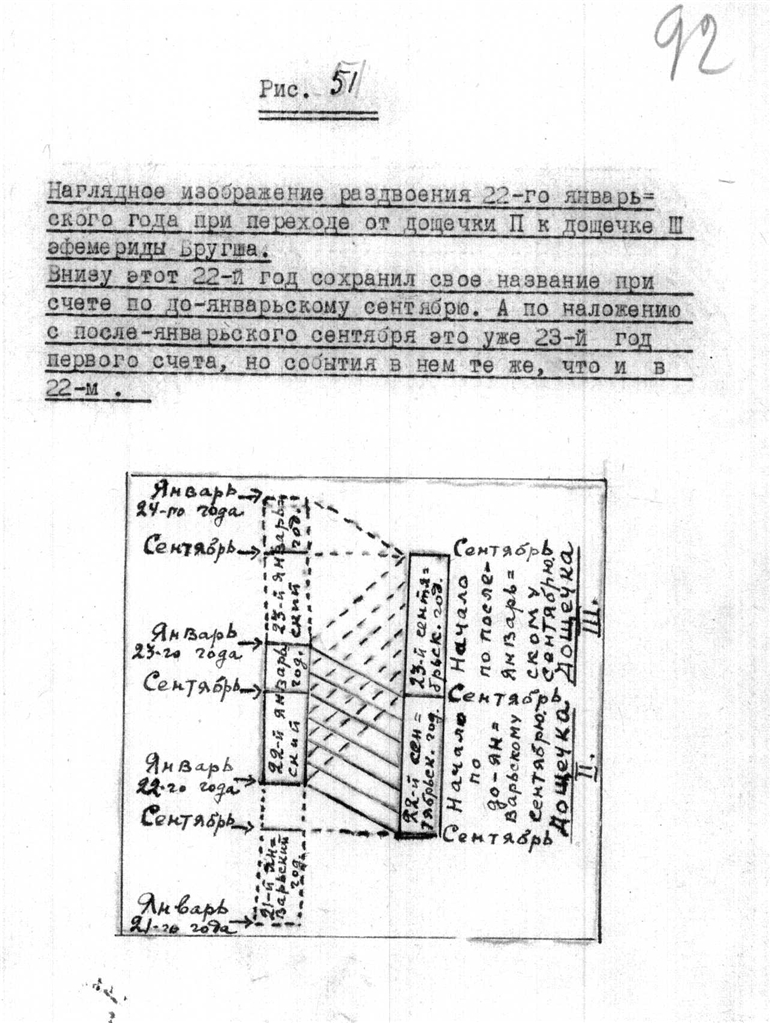 92
Рис. 51
Наглядное изображение раздвоения 22-го январь=
ского года при переходе от дощечки П к дощечке Ш
эфемериды Бругша.
Внизу этот 22-й год сохранил свое название при
счете по до-январьскому сентябрю. А по наложению
с после-январьского сентября это уже 23-й год
первого счета, но события в нем те же, что и в
22-м .
Январь
24-го года
Сентябрь
Январь
23-го года
Сентябрь
Январь
22-го года
Сентябрь
Январь
21-го года
23-й январь=
ский год.
22-й январь
ский год.
21-й ян=
варьский
год.
23-й сентя=
брьск. год.
22-й сен=
тябрьск. год.
Сентябрь
Начало
по после-
январь=
скому
сентябрю.
Дощечка
III.
Сентябрь
Начало
по
до-ян=
варьскому
сентябрю.
Дощечка
II.
Сентябрь